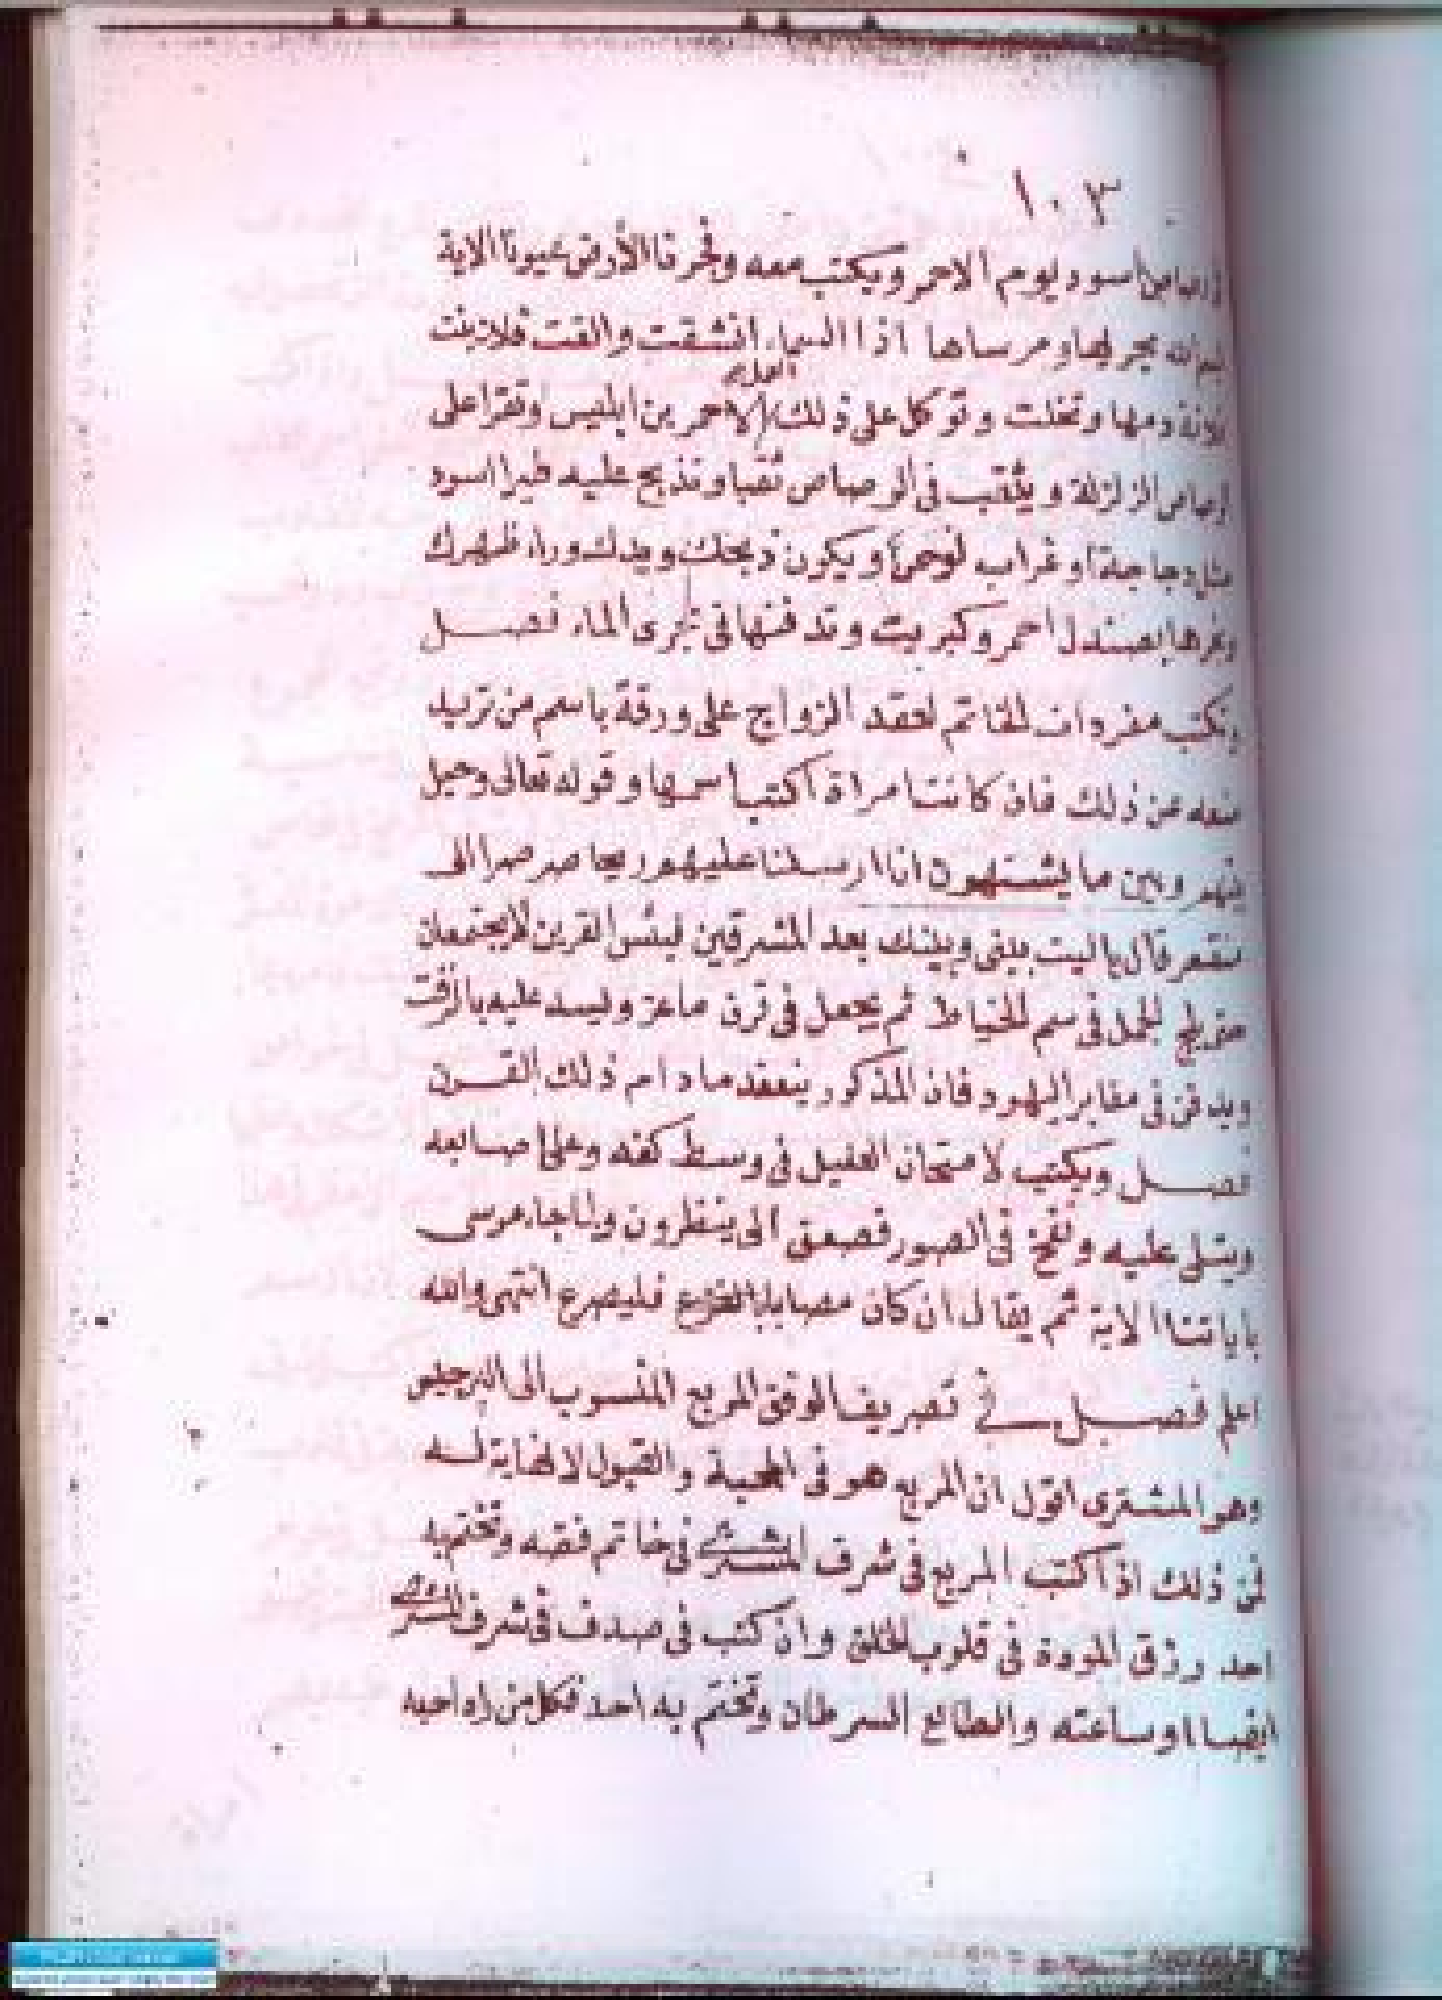 ١٠٣
رصاص اسود يوم الاحمر ويكتب معه وفجرنا الأرض عيونا الاية
بسم الله مجريها ومرساها اذا السماء انشقت والقت فلانة بنت
فلانة دمها وتخلت وتوكل على ذلك الاحمر بن ابليس وتقرا على
الرصاص الزلزلة ويثقب في الرصاص ثقبا وتذبح عليه طيرا اسود
مثل دجاجة او غراب نوحي ويكون ذبحك ويدك وراء ظهرك
وبخرها بصندل احمر وكبريت وتدفنها في مجرى الماء فصل
وتكتب مفردات الخاتم لعقد الزواج على ورقة باسم من تريد
منعه من ذلك فان كانت امراة اكتب اسمها وقوله تعالى وحيل
بينهم وبين ما يشتهون انا ارسلنا عليهم ريحا صرصرا الى
منقعر قال يا ليت بيني وبينك بعد المشرقين فبئس القرين لا يجتمعان
حتى يلج الجمل في سم الخياط ثم يجعل في قرن ماعز ويسد عليه بالزفت
ويدفن في مقابر اليهود فان المذكور ينعقد ما دام ذلك القرن
فصل ويكتب لامتحان العليل في وسط كفه وعلى اصابعه
ويتلى عليه ونفخ في الصور فصعق الى ينظرون ولما جاء موسى
باياتنا الاية ثم يقال ان كان مصابا فليصرع انتهى والله
اعلم فصل في تصريف الوفق المربع المنسوب الى البرجيس
وهو المشترى اقول ان المربع هو في المحبة والقبول لا نهاية له
فمن ذلك اذا كتب المربع في شرف المشتري في خاتم فضه وتختم به
احد رزق المودة في قلوب الخلق وان كتب في صدف في شرف المشتري
ايضا او ساعته والطالع السرطان وتختم به احد فكل من راه احبه